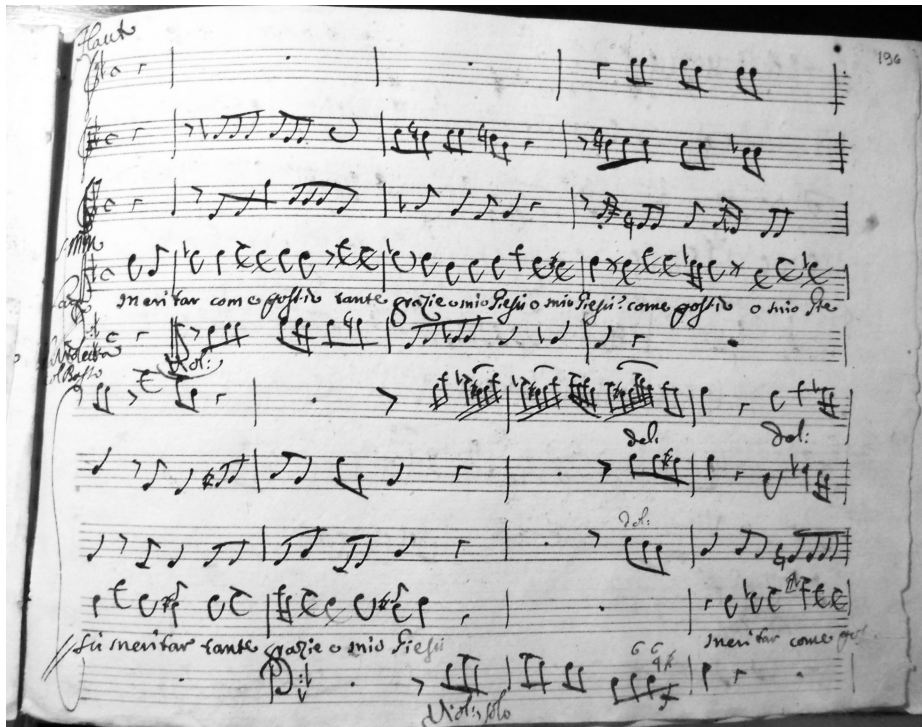 196
Haut
meritar come possio tante grazie o mio Giesù o mio Giesù? come possio o mio Gie
Violetta
dol:
dol: dol:
dol:
sù meritar tante grazie o mio Giesù meritar come
6 6
Viol: solo